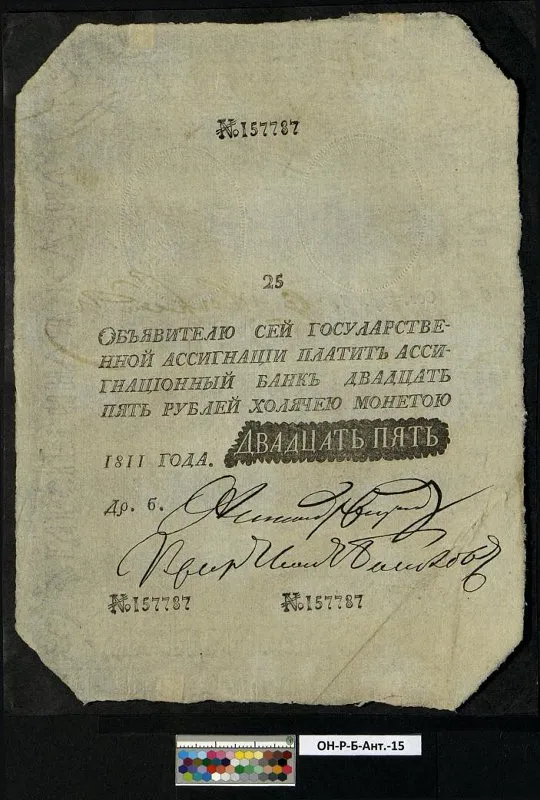 №157787
25
ОБЪЯВИТЕЛЮ СЕЙ ГОСУЛАРСТВЕ-
ННОЙ АССИГНАЦІИ ПЛАТИТЪ АССИ-
ГНАЦІОННЫЙ БАНКЪ ДВАДЦАТЬ
ПЯТЬ РУБЛЕЙ ХОЛЯЧЕЮ МОНЕТОЮ
1811 ГОДА. ДВАДЦАТЬ ПЯТЬ
Др. б.
№157787 №157787
ОН-Р-Б-Ант.-15